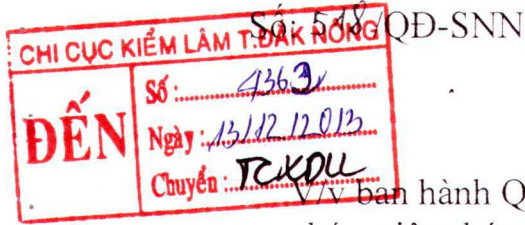 Số: 548/QĐ-SNN
CHI CỤC KIỂM LÂM T.ĐĂK NÔNG
ĐẾN
Số:
Ngày: 13/12/2013
Chuyển: TCXDLL
V/v ban hành Q